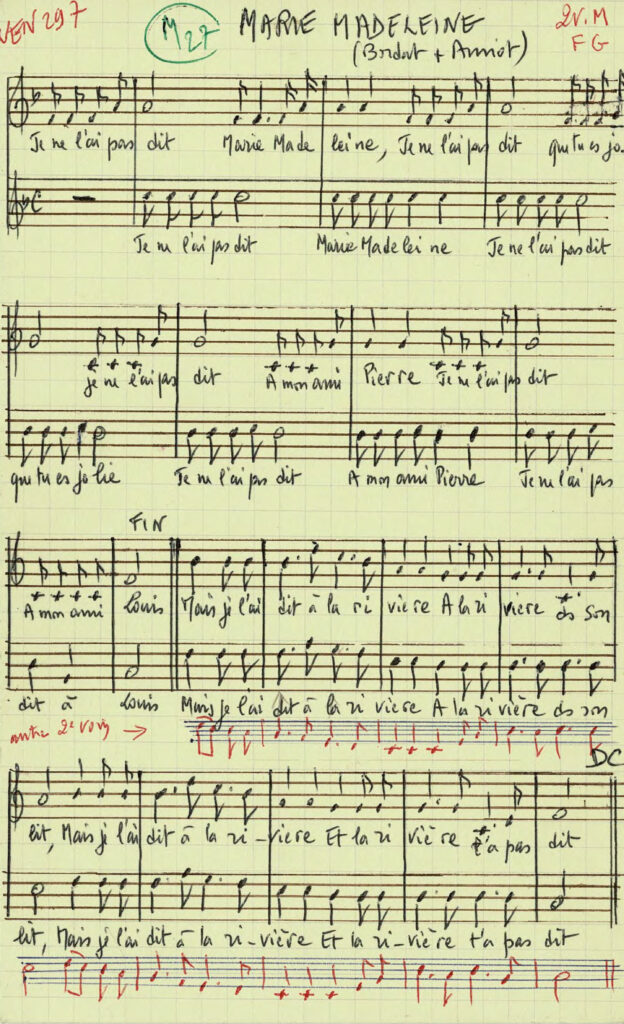 VEN 297
M 27
MARIE MADELEINE
2V.M
(Bordat + Amiot)
F G
Je ne l'ai pas dit Marie Made leine, Je ne l'ai pas dit que tu es jo.
Je ne l'ai pas dit Marie Madeleine Je ne l'ai pas dit
je ne l'ai pas dit A mon ami Pierre Je ne l'ai pas dit
que tu es jolie Je ne l'ai pas dit A mon ami Pierre Je ne l'ai pas
FIN
A mon ami Louis Mais je l'ai dit à la ri vière A la ri vière ds son
dit à Louis Mais je l'ai dit à la ri vière A la rivière ds son
autre 2e voix →
DC
lit, Mais je l'ai dit à la ri-vière Et la ri vière t'a pas dit
lit, Mais je l'ai dit à la ri-vière Et la ri-vière t'a pas dit